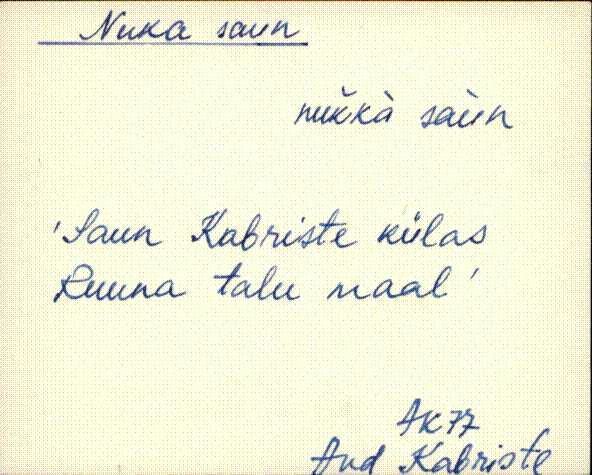 Nuka saun
nukkà saùn
'Saun Kabriste külas
Ruuna talu maal'
AK 77
And Kabriste